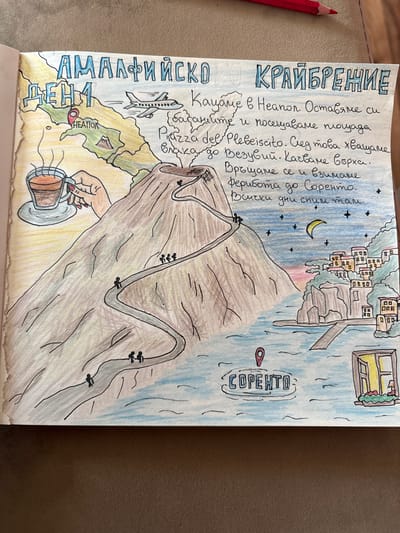 АМАЛФИЙСКО КРАЙБРЕЖИЕ
ДЕН 1
НЕАПОЛ
Кацаме в Неапол. Оставяме си
багажите и посещаваме площада
Piazza del Plebeiscito. След това хващаме
влака до Везувий. Качваме върха.
Връщаме се и взимаме
ферибота до Соренто.
Всички дни спим там.
СОРЕНТО